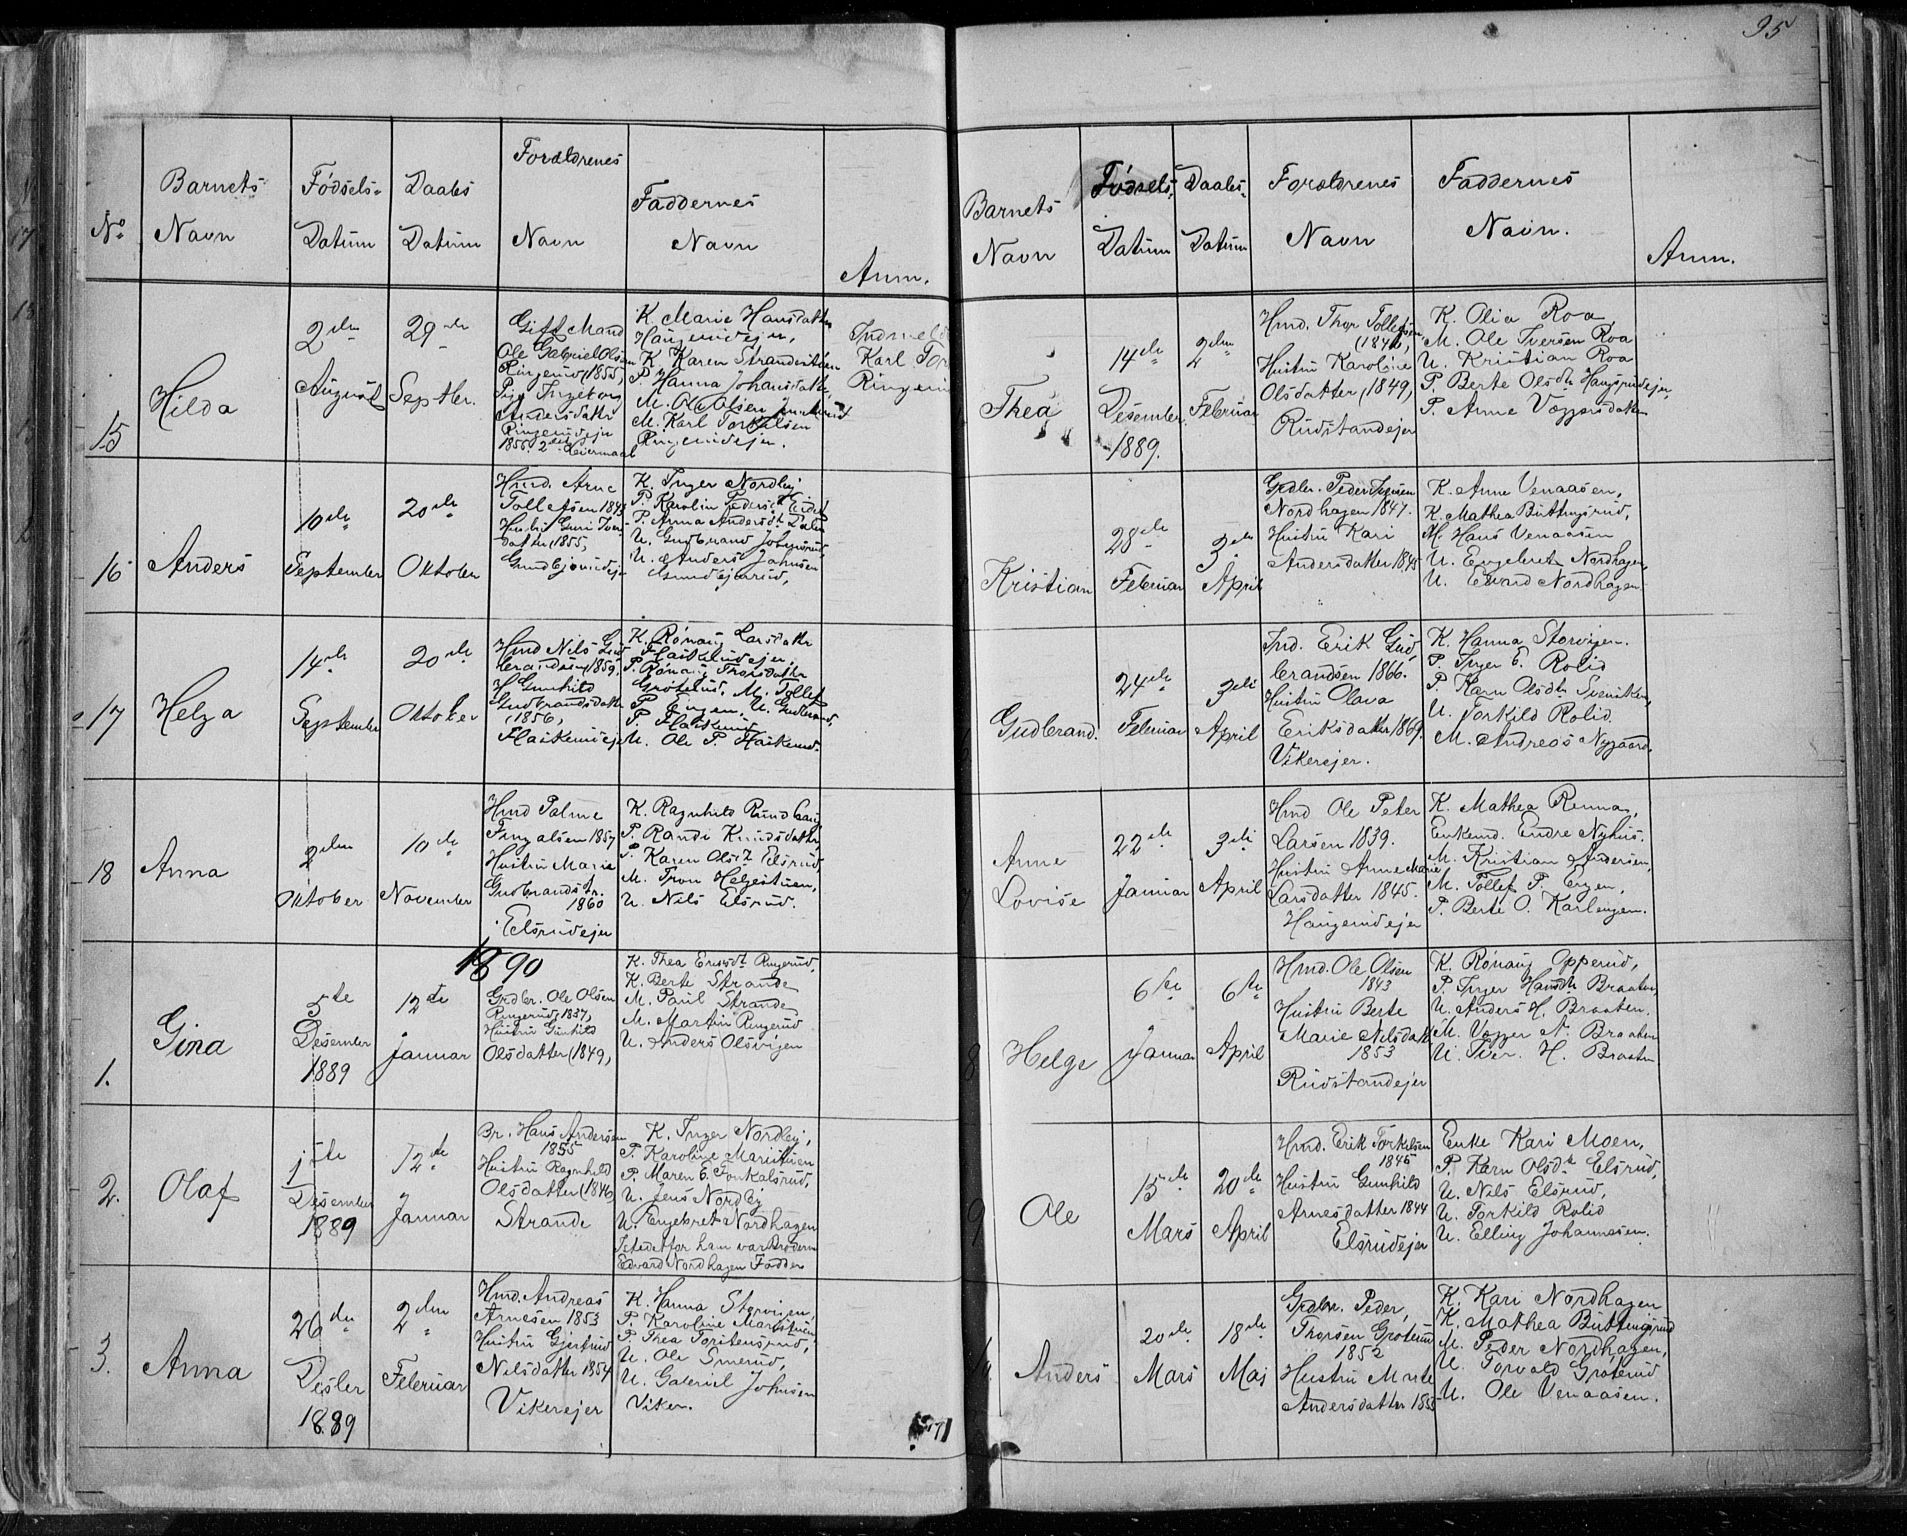 95
No
Barnets
Navn
Fødsels-
Datum
Daabs
Datum
Forældrenes
Navn
Faddernes
Navn
Anm.
15
Hilda
2den
August
29de
Septbr.
Gift Mand
Ole Gabriel Olsen
Ringerud (1855,
Pige Ingeborg
Andersdatter
Ringerudejn
1856. 2det Leiermaal
K. Marie Hansdatter
Haugerudejn,
K. Karen Strandvolden
P. Hanna Johansdatter,
M. Ole Olsen
M. Karl Torkelsen
Ringerudejn.
Karl Tor
Ringeru
16
Anders
10de
September
20de
Oktober
Hmd. Arne
Tollefsen 1843
Hustru Guri Iver
datter (1855,
K. Inger Nordby
P. Karolin Pedersdt
P. Anna Andersdt
U. Gudbrand Johnsrud
U. Anders Johnsen
17
Helga
14de
September
20de
Oktober
Hmd Nils Gud
brandsen (1859,
H. Gunhild
Gudbrandsdatter
(1856,
Haskerudejer
K. Rønaug Larsdatter
P. Rønaug Thorsdatter
Grøterud, M. Tollef
P. Engen, U. Gudbrand
P. Haskerud
M. Ole P. Haskerud.
18
Anna
2den
Oktober
10de
November
Hmd Palme
Fingalsen 1857
Hustru Marie
Gudbrandsdtr.
1860
Elsrudejer
K. Ragnhild Rund
P. Randi Knudsdatter
P. Karen Olsdt Elsrud,
M. Tron Helgestuen,
U. Nils Elsrud.
1890
1.
Gina
5te
Desember
1889
12te
Januar
Grdbr. Ole Olsen
Ringerud, 1837,
Hustru Gunhild
Olsdatter (1849,
K. Thea Eriksdt Ringerud,
K. Berte Strande
M. Paul Strande
M. Martin Ringerud
U. Anders Olsvigen
2.
Olaf
1ste
Desember
1889
12te
Januar
Br. Hans Andersen
1855
Hustru Ragnhild
Olsdatter (1846,
Strande
K. Inger Nordby,
P. Karoline Maristuen
P. Maren E. Torkalsrud,
U. Jens Nordby
U. Engebret Nordhagen
Istedetfor ham var Broderen
Edvard Nordhagen Fadder
3.
Anna
26de
Desber
1889
2den
Februar
Hmd. Andreas
Arnesen 1853
Hustru Gjertrud
Nilsdatter 1854
Vikerejer
K. Hanna Storvigen,
P. Karoline Maristuen,
P. Thea Torstensrud,
U. Ole Smerud,
U. Gabriel Johnsen
Viker.
Barnets
Navn
Fødsels-
Datum
Daabs-
Datum
Forældrenes
Navn
Faddernes
Navn.
Anm.
Thea
14de
Desember
1889.
2den
Februar
Hmd. Thor Tollefsen
(1846,
Hustru Karoline
Olsdatter (1849,
Rudstandejer
K. Olia Roa
M. Ole Iversen Roa
U. Kristian Roa
P. Berte Olsdtr Haugsrudejer,
P. Anne Væggersdatter
Kristian
28de
Februar
3die
April
Grdbr. Peder
Nordhagen 1847.
Hustru Kari
Andersdatter 1845
K. Anne Venaasen,
K. Mathea Buttingsrud,
M. Hans Venaasen
U. Engebret Nordhagen,
U. Edvard Nordhagen
Gudbrand.
24de
Februar
3die
April
Ind. Erik Gud
brandsen 1866.
Hustru Olava
Eriksdatter 1869.
Vikerejer.
K. Hanna Storvigen.
P. Inger E. Rolid
P. Karn Olsdtr
U. Torkild Rolid.
M. Andreas Nygaard.
Anne
Lovise
22de
Januar
3die
April
Hmd Ole Peter
Larsen 1839.
Hustru Anne Marie
Larsdatter 1845.
Haugerudejer
K. Mathea Renna,
Enkemd. Endre Nyhus.
M. Kristian Andersen,
M. Tollef P. Engen,
P. Berte O. Karlengen.
8
Helge
6te
Januar
6te
April
Hmd. Ole Olsen
1843
Hustru Berte
Marie Nilsdatt
1853
Rudstandejer
K. Rønaug Opperud,
P. Inger Hansdtr Braaten,
U. Anders H. Braaten.
M. Vegger N. Braaten
U. Iver. H. Braaten
9
Ole
15de
Mars
20de
April
Hmd. Erik Torkelsen
1845
Hustru Gunhild
Arnesdatter 1844
Elsrudejer
Enke Kari Moen,
P. Karn Olsdtr Elsrud,
U. Nils Elsrud,
U. Torkild Rolid
U. Elling Johannesen.
Anders
20de
Mars
18de
Maj
Grdbr. Peder
Thorsen Grøterud
1852
Hustru Marte
Andersdatter 1855
K. Kari Nordhagen
K. Mathea Buttingsrud
M. Peder Nordhagen,
U. Torvald Grøterud
U. Ole Venaasen.